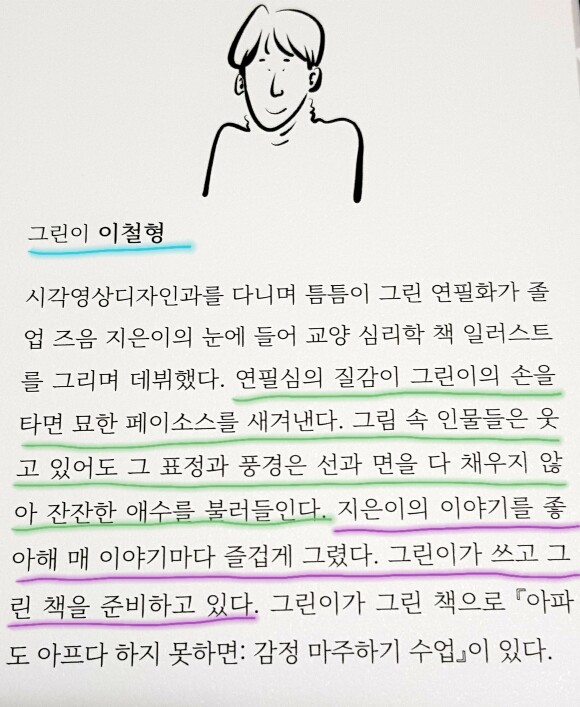 그린이 이철형
시각영상디자인과를 다니며 틈틈이 그린 연필화가 졸
업 즈음 지은이의 눈에 들어 교양 심리학 책 일러스트
를 그리며 데뷔했다. 연필심의 질감이 그린이의 손을
타면 묘한 페이소스를 새겨낸다. 그림 속 인물들은 웃
고 있어도 그 표정과 풍경은 선과 면을 다 채우지 않
아 잔잔한 애수를 불러들인다. 지은이의 이야기를 좋
아해 매 이야기마다 즐겁게 그렸다. 그린이가 쓰고 그
린 책을 준비하고 있다. 그린이가 그린 책으로 『아파
도 아프다 하지 못하면: 감정 마주하기 수업』이 있다.